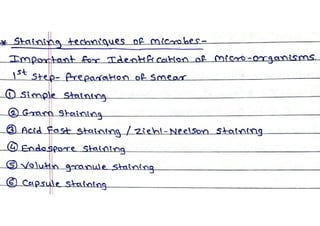 * Staining techniques of microbes-
Important for Identification of micro-organisms
1st Step- Preparation of smear
① Simple Staining
② Gram Staining
③ Acid Fast Staining / Ziehl-Neelson Staining
④ Endospore Staining
⑤ Volutin granule staining
⑥ Capsule Staining